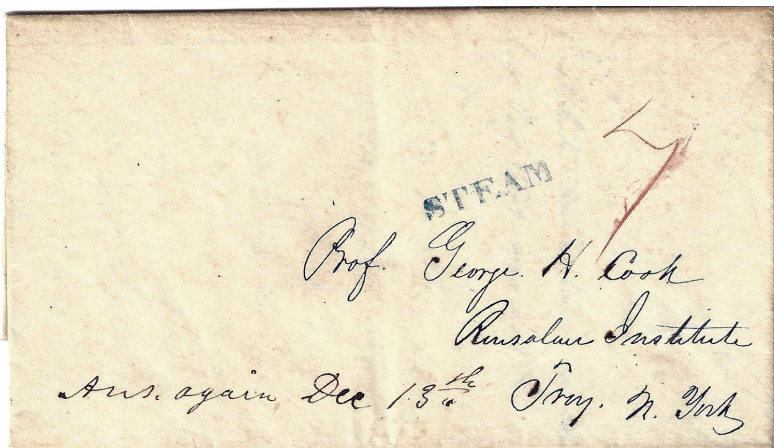 7
STEAM
Prof. George. H. Cook
Rensalaer Institute
Ans. again Dec 13th Troy. N. York